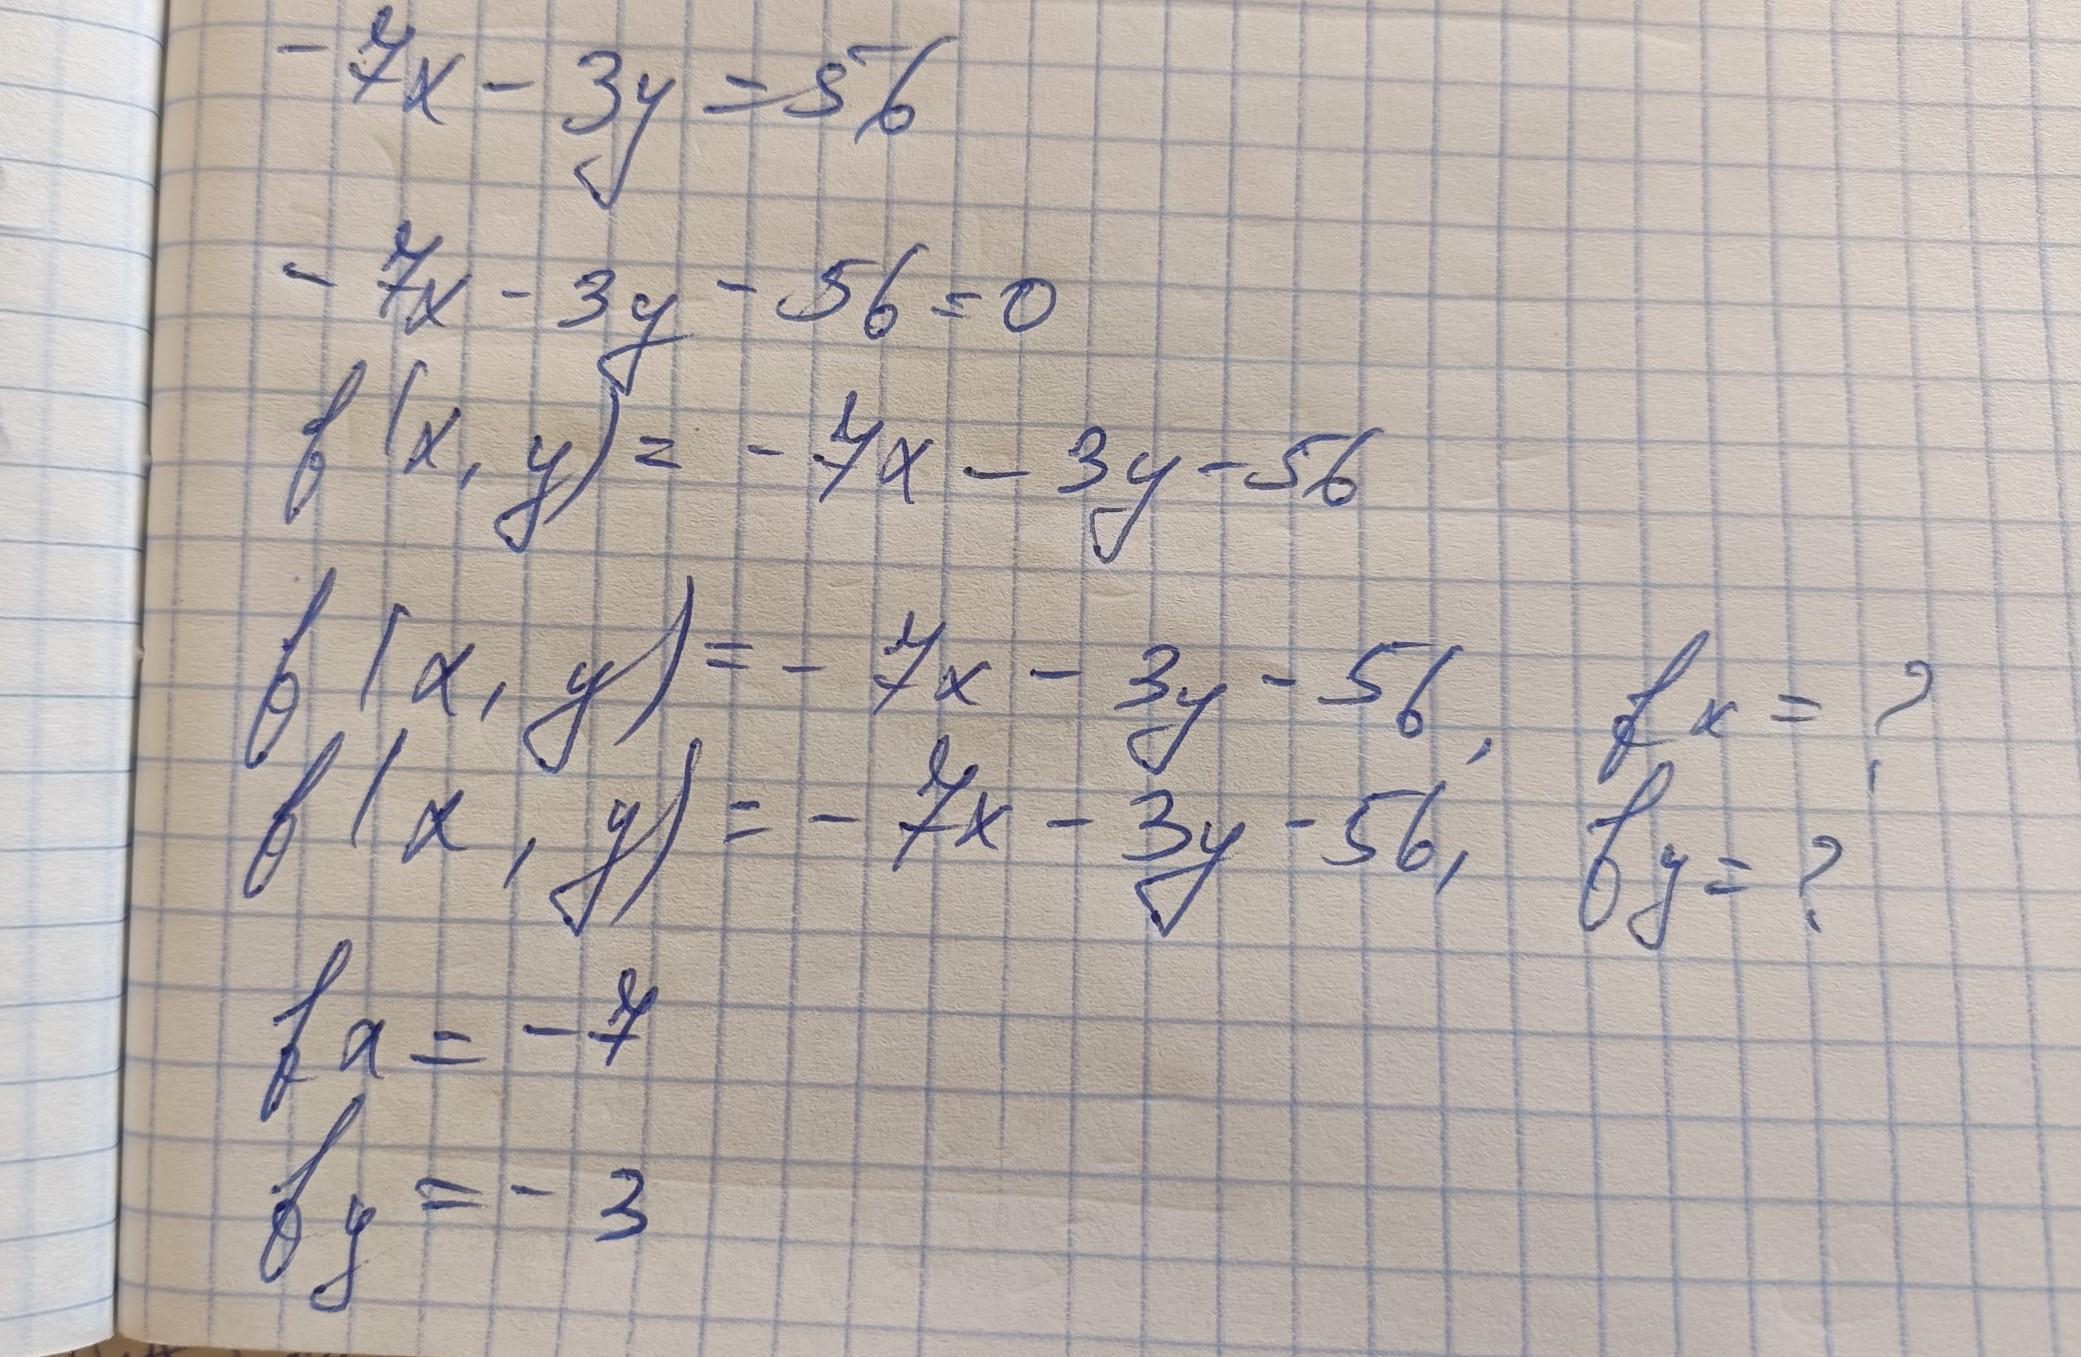 -7x - 3y = 56
-7x - 3y - 56 = 0
f(x, y) = -7x - 3y - 56
f(x, y) = -7x - 3y - 56, fx = ?
f(x, y) = -7x - 3y - 56, fy = ?
fx = -7
fy = -3